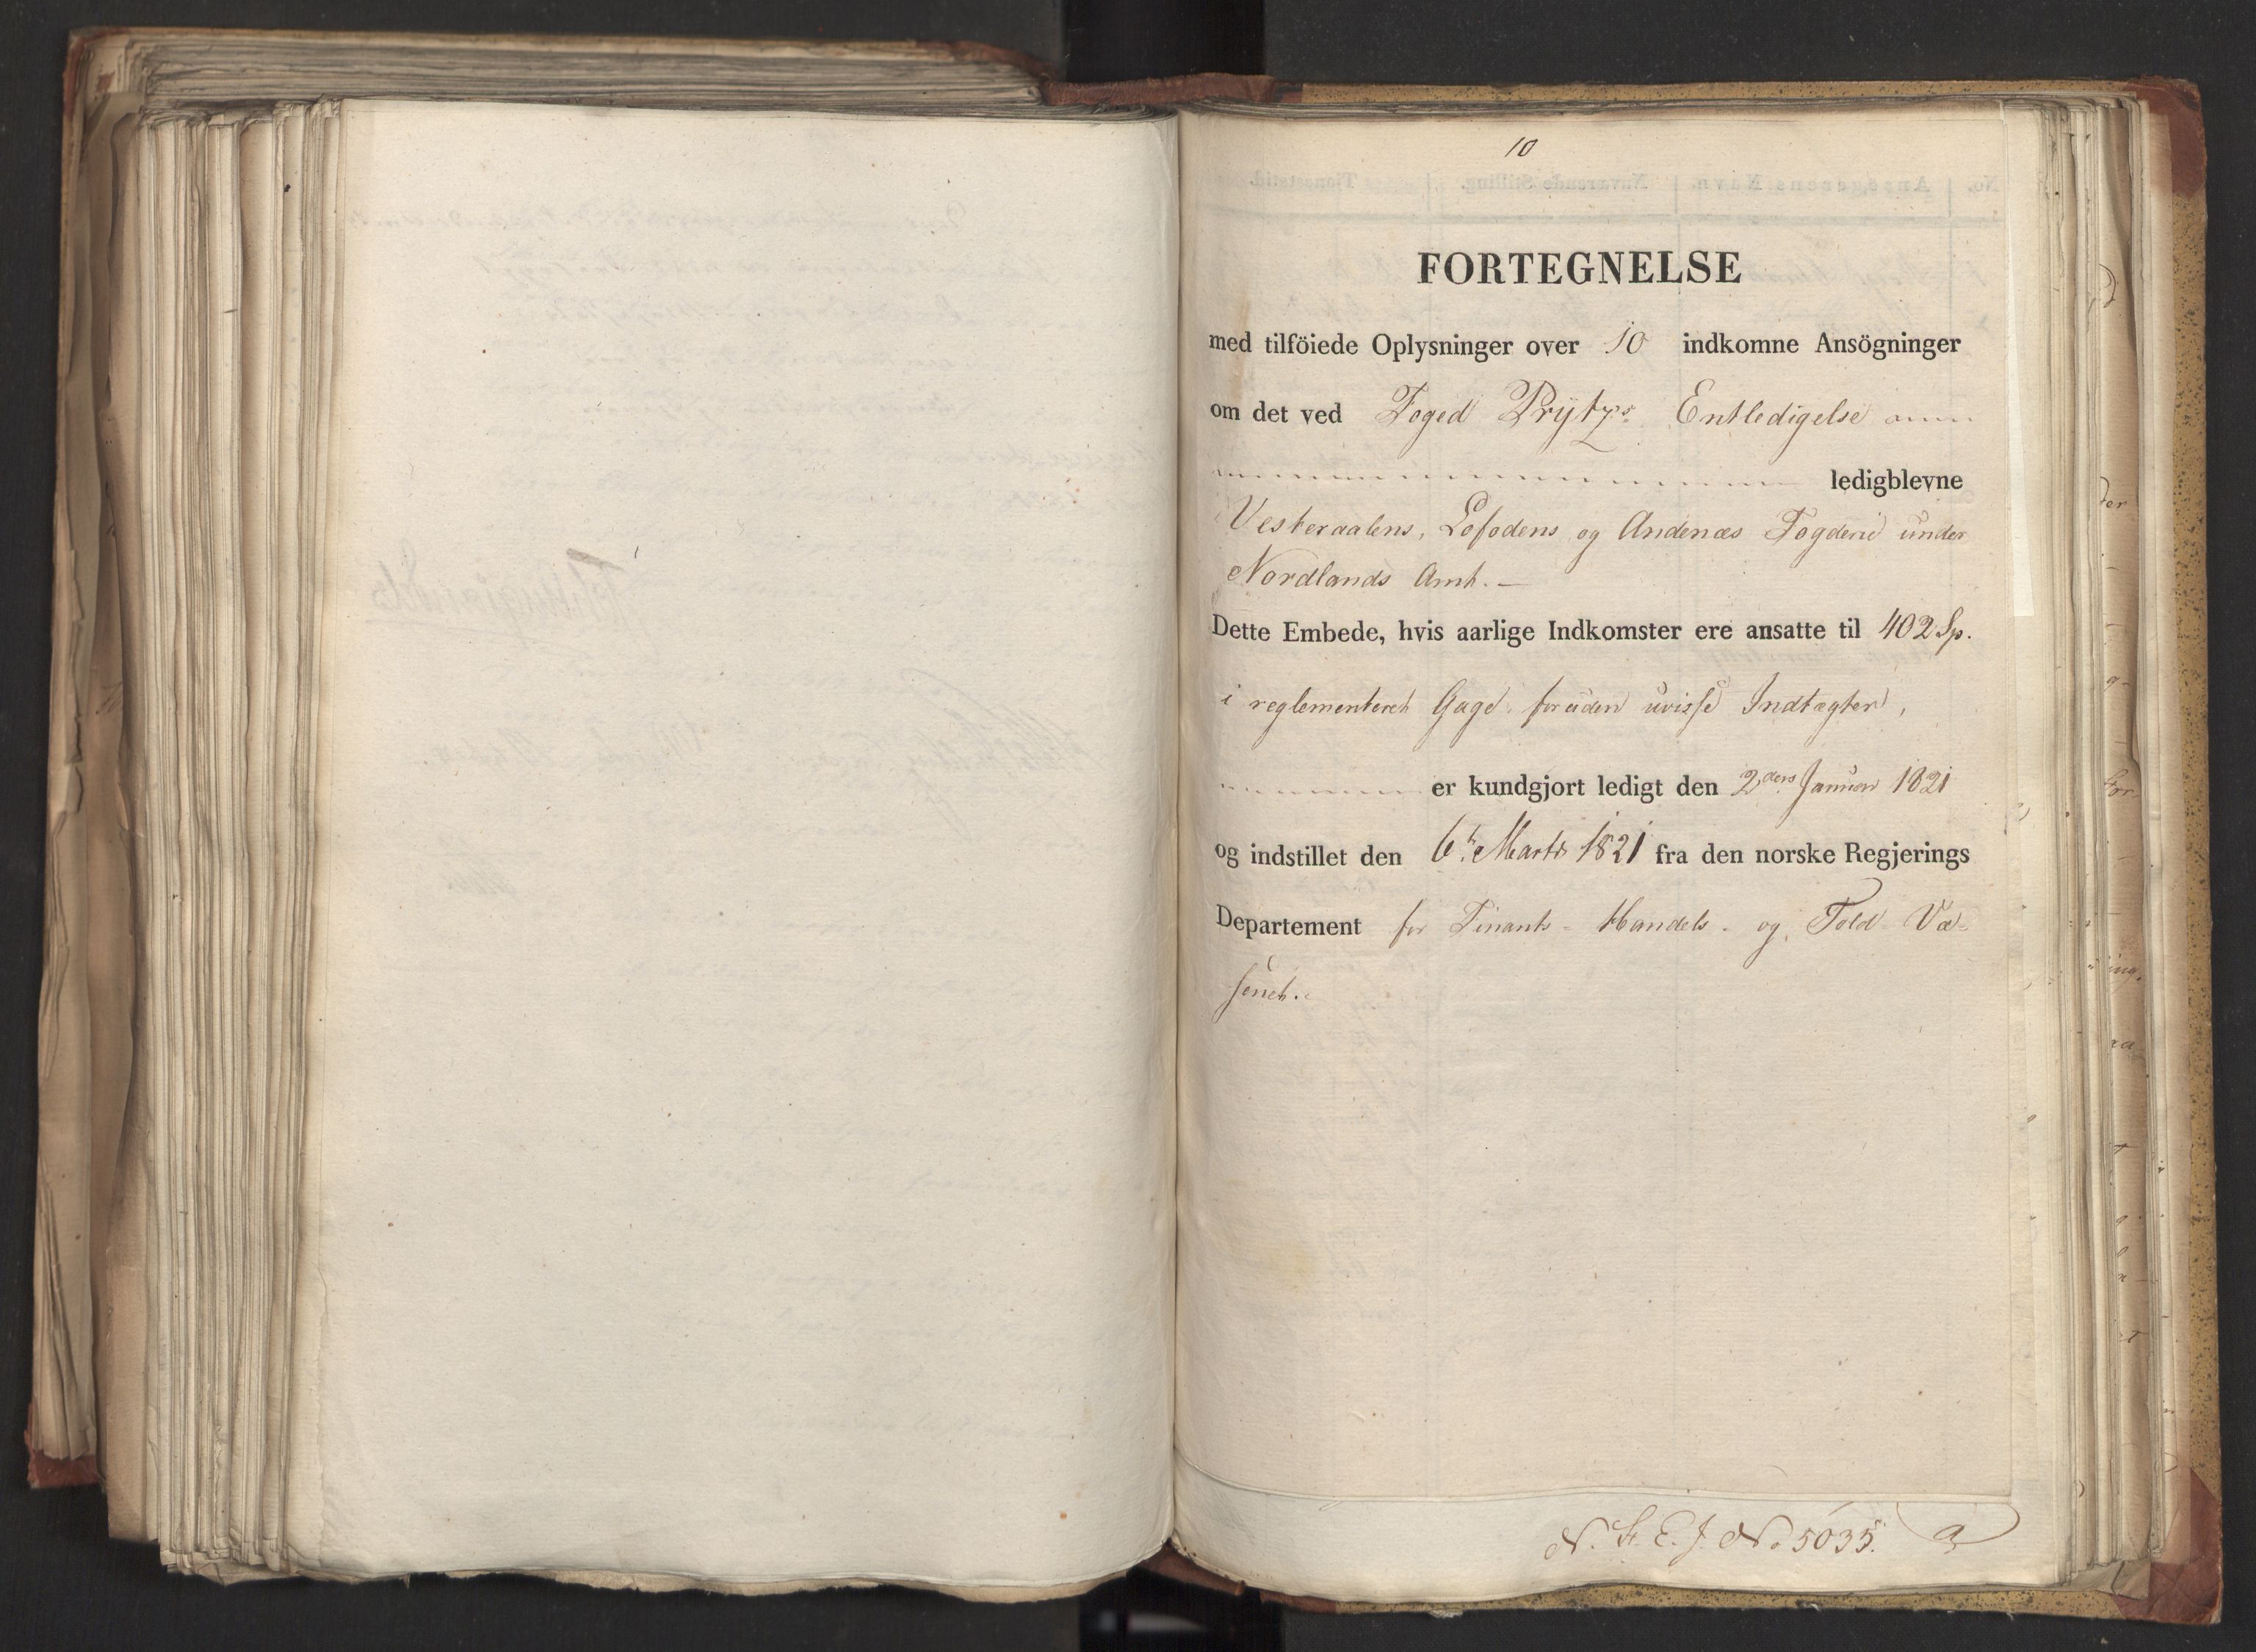 10
FORTEGNELSE
med tilföiede Oplysninger over 10 indkomne Ansögninger
om det ved Foged Prÿtz's Entledigelse
ledigblevne
Vesteraalens, Lofodens og Andenæs Fogderie under
Nordlands Amt. —
Dette Embede, hvis aarlige Indkomster ere ansatte til 402 Sp.
i reglementeret Gage foruden uvisse Indtægter,
er kundgjort ledigt den 2den Januar 1821
og indstillet den 6te Marts 1821 fra den norske Regjerings
Departement for Finants- Handels- og Told Væ-
senet.
N. St. E. J. No 5035. a